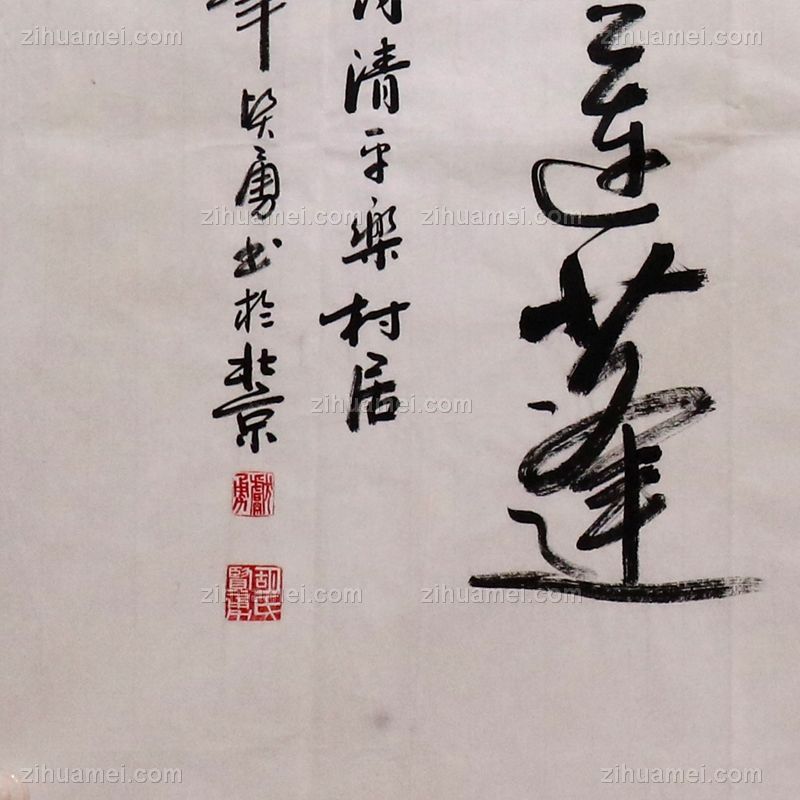 蓮蓬
清平樂村居
年賢勇书於北京
zihuamei.com zihuamei.com zihuamei.com
zihuamei.com zihuamei.com
zihuamei.com
zihuamei.com zihuamei.com
zihuamei.com zihuamei.com zihuamei.com